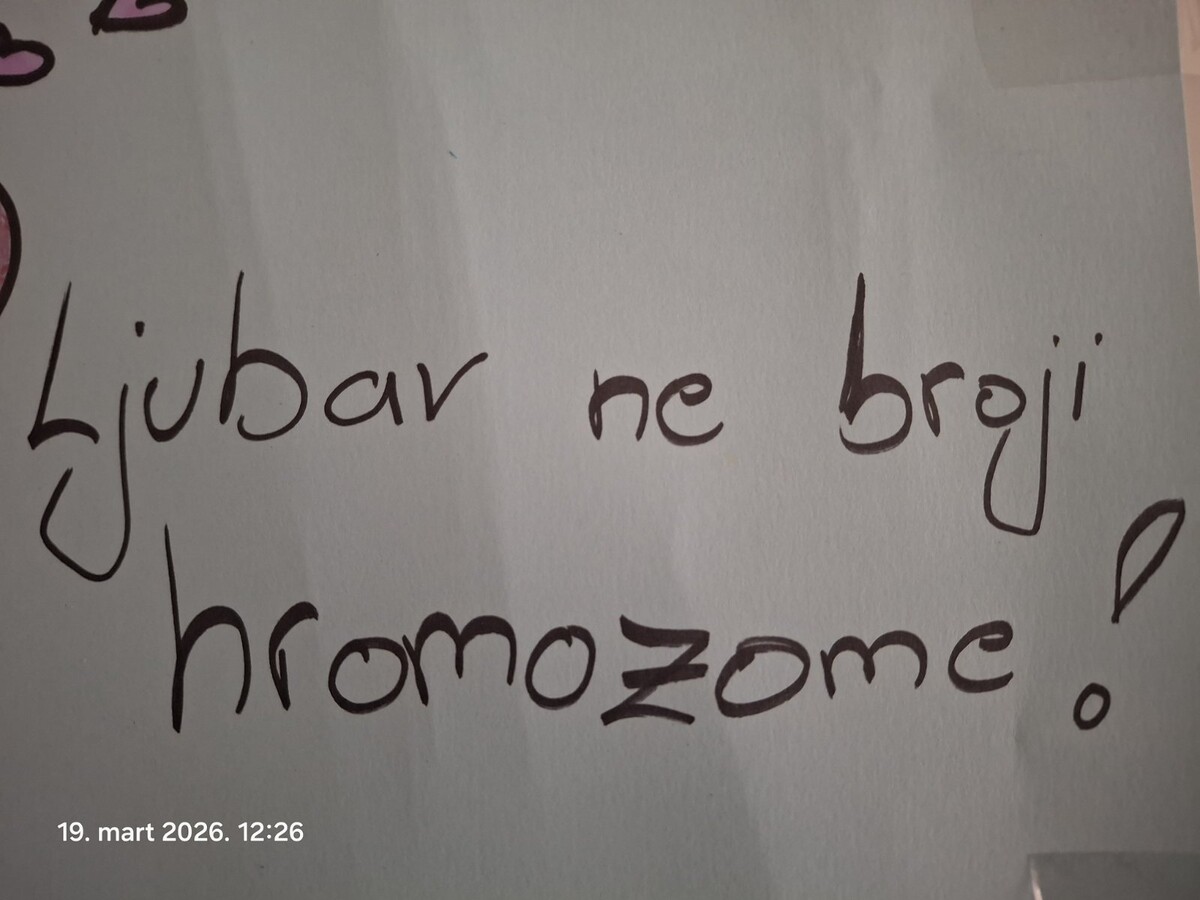 Ljubav ne broji
hromozome!
19. mart 2026. 12:26